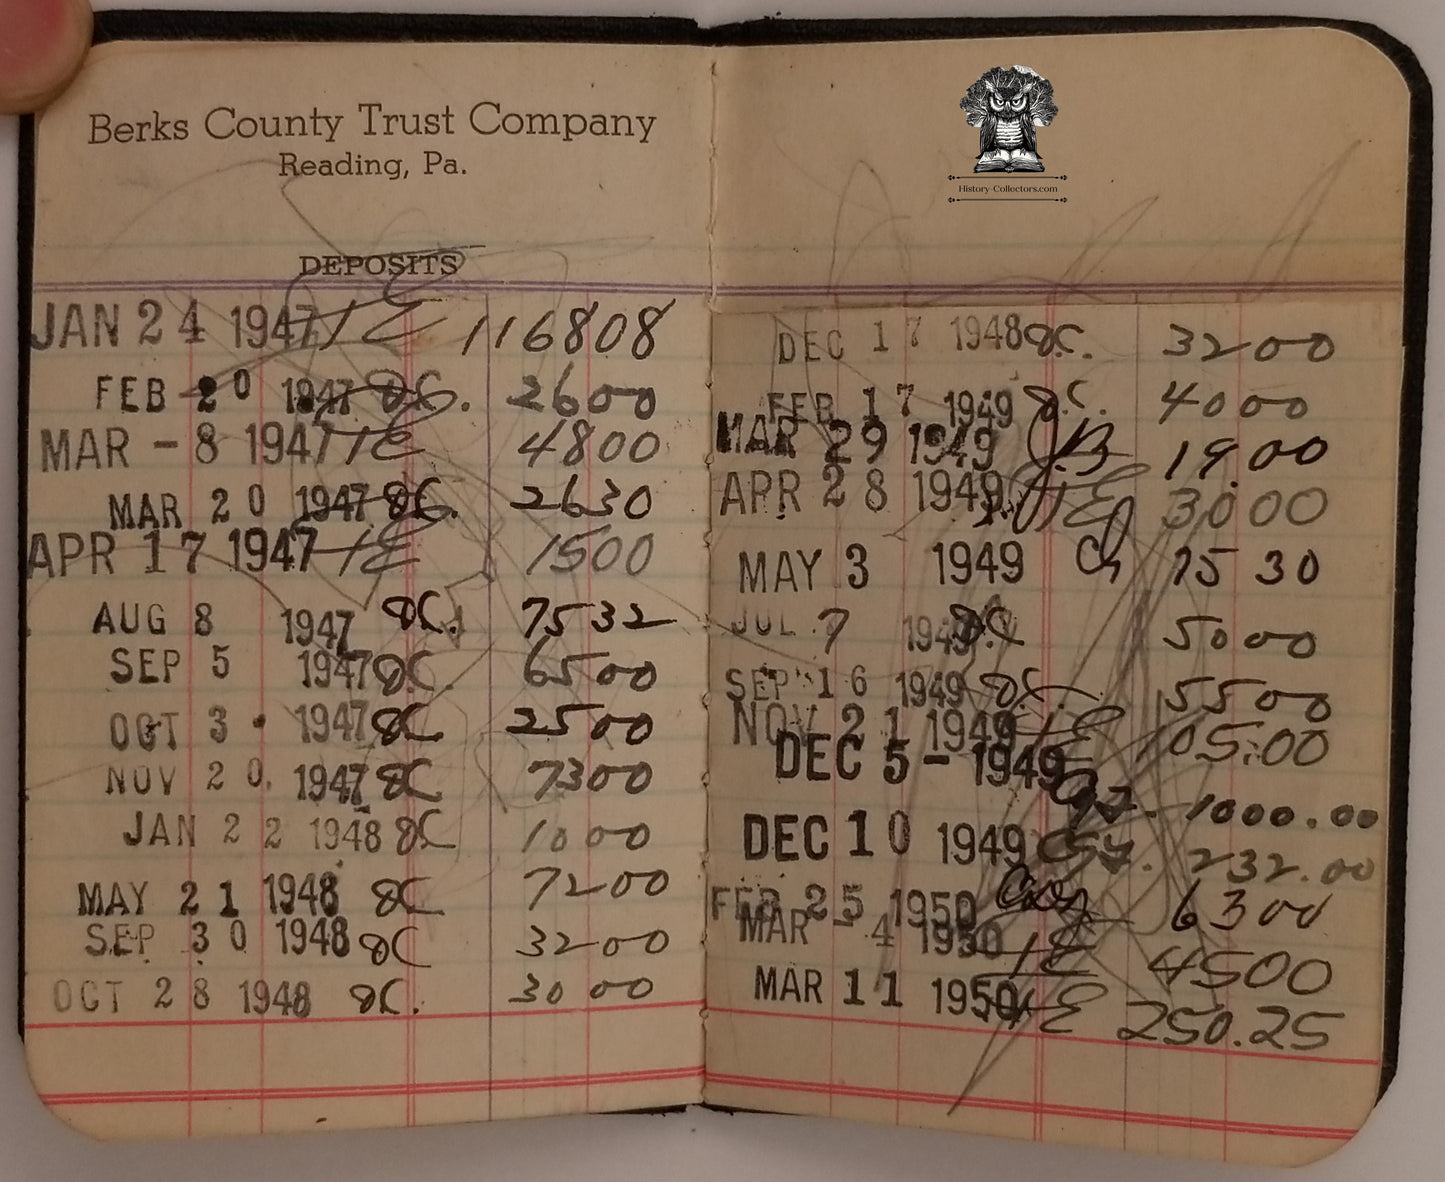 Berks County Trust Company
Reading, Pa.
DEPOSITS
JAN 24 1947 HE 116808
FEB 20 1947 8C. 2600
MAR - 8 1947 HE 4800
MAR 20 1947 8C. 2630
APR 17 1947 HE 1500
AUG 8 1947 8C. 7532
SEP 5 1947 8C. 6500
OCT 3 1947 8C 2500
NOV 20 1947 8C 7300
JAN 22 1948 8C 1000
MAY 21 1948 8C 7200
SEP 30 1948 8C 3200
OCT 28 1948 8C. 3000
History-Collectors.com
DEC 17 1948 8C. 3200
FEB 17 1949 8.C. 4000
MAR 29 1949 JB 19.00
APR 28 1949 HE 3000
MAY 3 1949 15 30
JUL 7 1949 8C 5000
SEP 16 1949 8C. 5500
NOV 21 1949 HE 105.00
DEC 5 - 1949 1000.00
DEC 10 1949 232.00
FEB 25 1950 6300
MAR - 4 1950 HE 4500
MAR 11 1950 HE 250.25